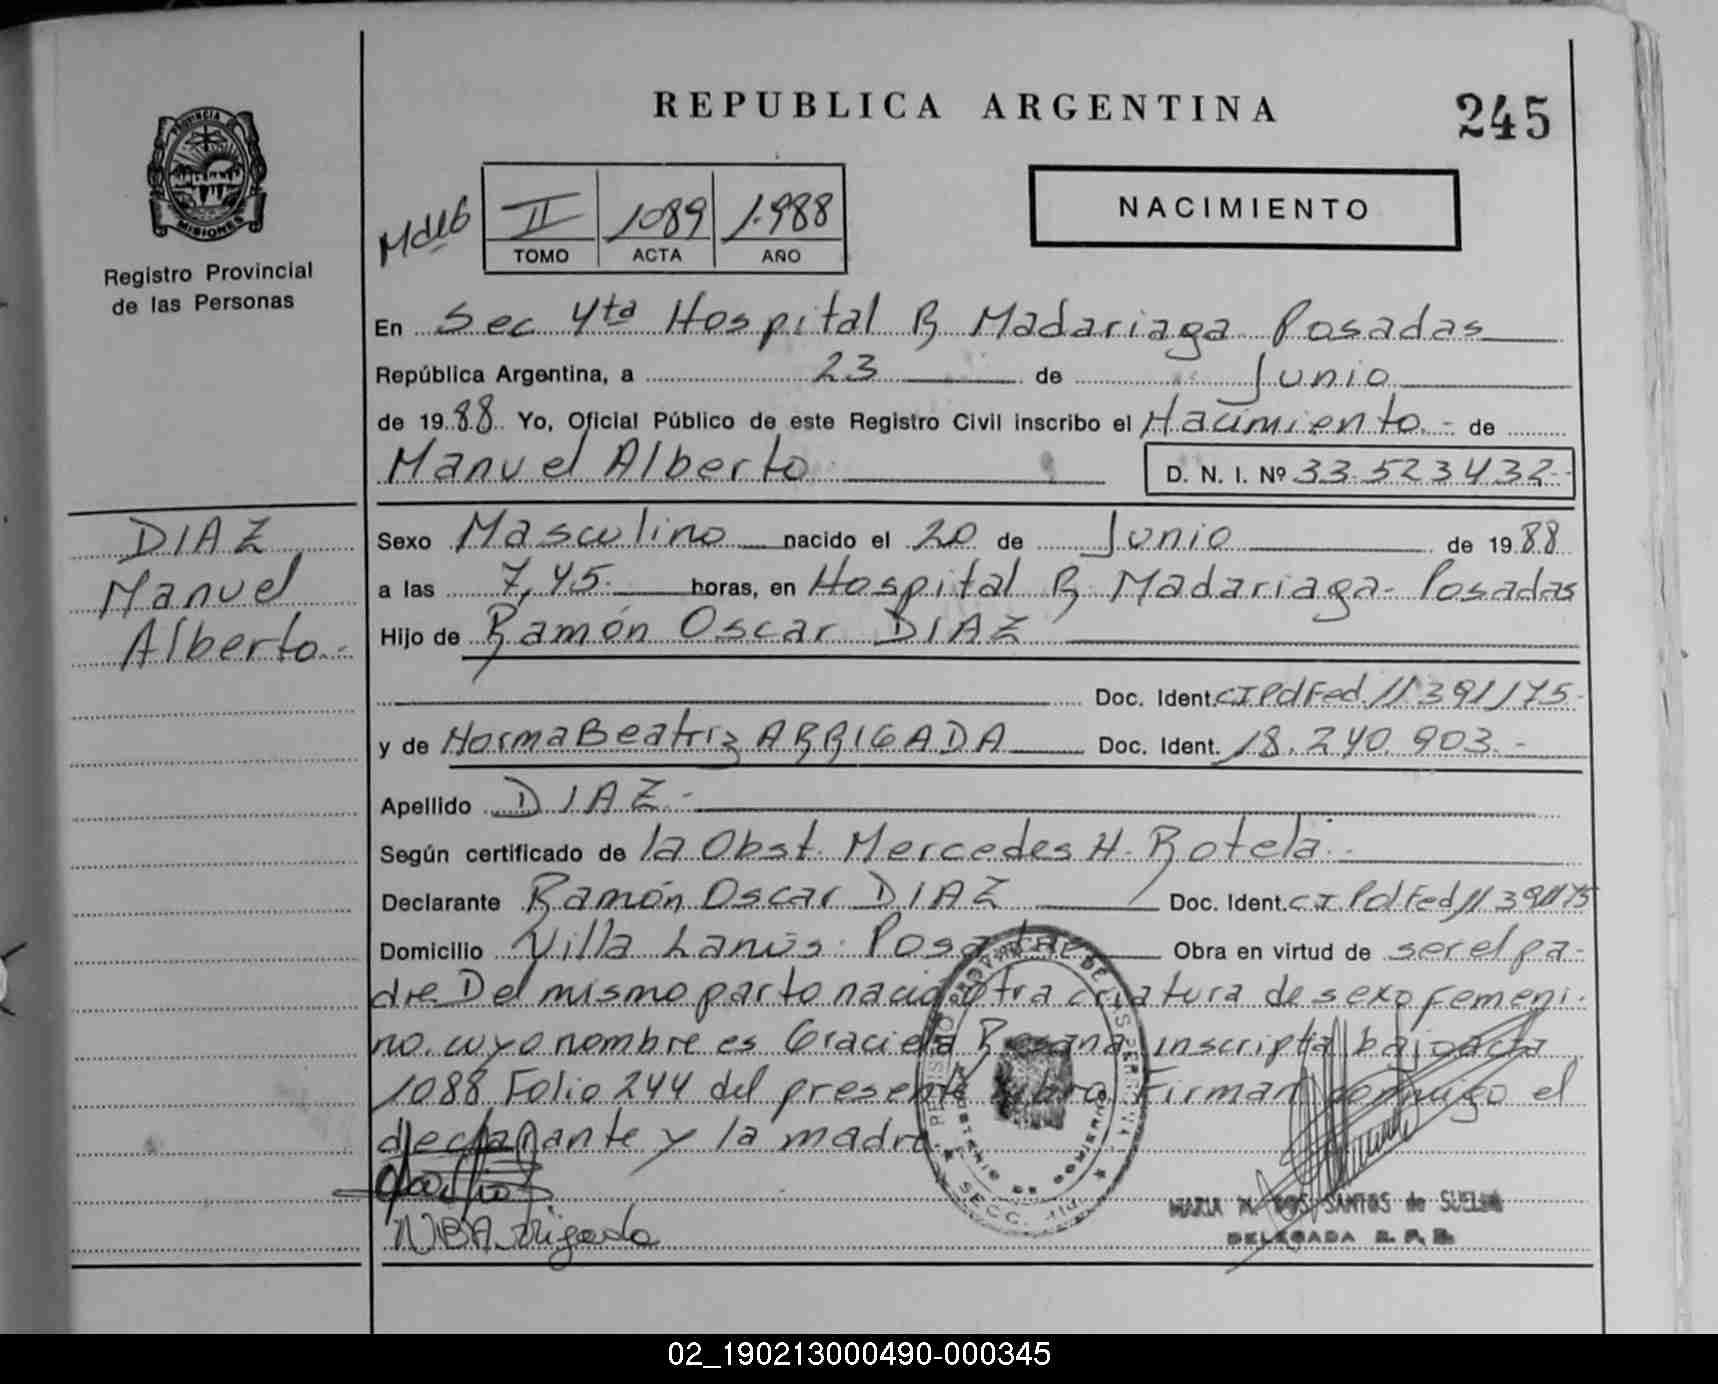 REPUBLICA ARGENTINA
245
PROVINCIA DE
MISIONES
Registro Provincial
de las Personas
NACIMIENTO
II 1089 1.988
TOMO ACTA AÑO
En Sec 4ta Hospital R Madariaga Posadas
República Argentina, a 23 de Junio
de 1988 Yo, Oficial Público de este Registro Civil inscribo el Nacimiento.- de
Manuel Alberto
D. N. I. Nº 33.523432-
DIAZ
Manuel
Alberto.-
Sexo Masculino nacido el 20 de Junio de 1988
a las 7,45. horas, en Hospital R Madariaga- Posadas
Hijo de Ramón Oscar DIAZ
Doc. Ident. CIPolFed. 11391175-
y de Norma Beatriz ARRIGADA Doc. Ident. 18.240.903.-
Apellido DIAZ-
Según certificado de la Obst. Mercedes H. Rotela.-
Declarante Ramón Oscar DIAZ Doc. Ident. CI PolFed 11391175
Domicilio Villa Lanús. Posadas Obra en virtud de ser el pa-
dre Del mismo parto nació otra criatura de sexo femeni-
no. cuyo nombre es Graciela Rosana inscripta bajo acta
1088 Folio 244 del presente libro. Firman conmigo el
declarante y la madre
NBArrigada
MARIA M. DOS SANTOS de SUELDO
DELEGADA R. P. P.
02_190213000490-000345